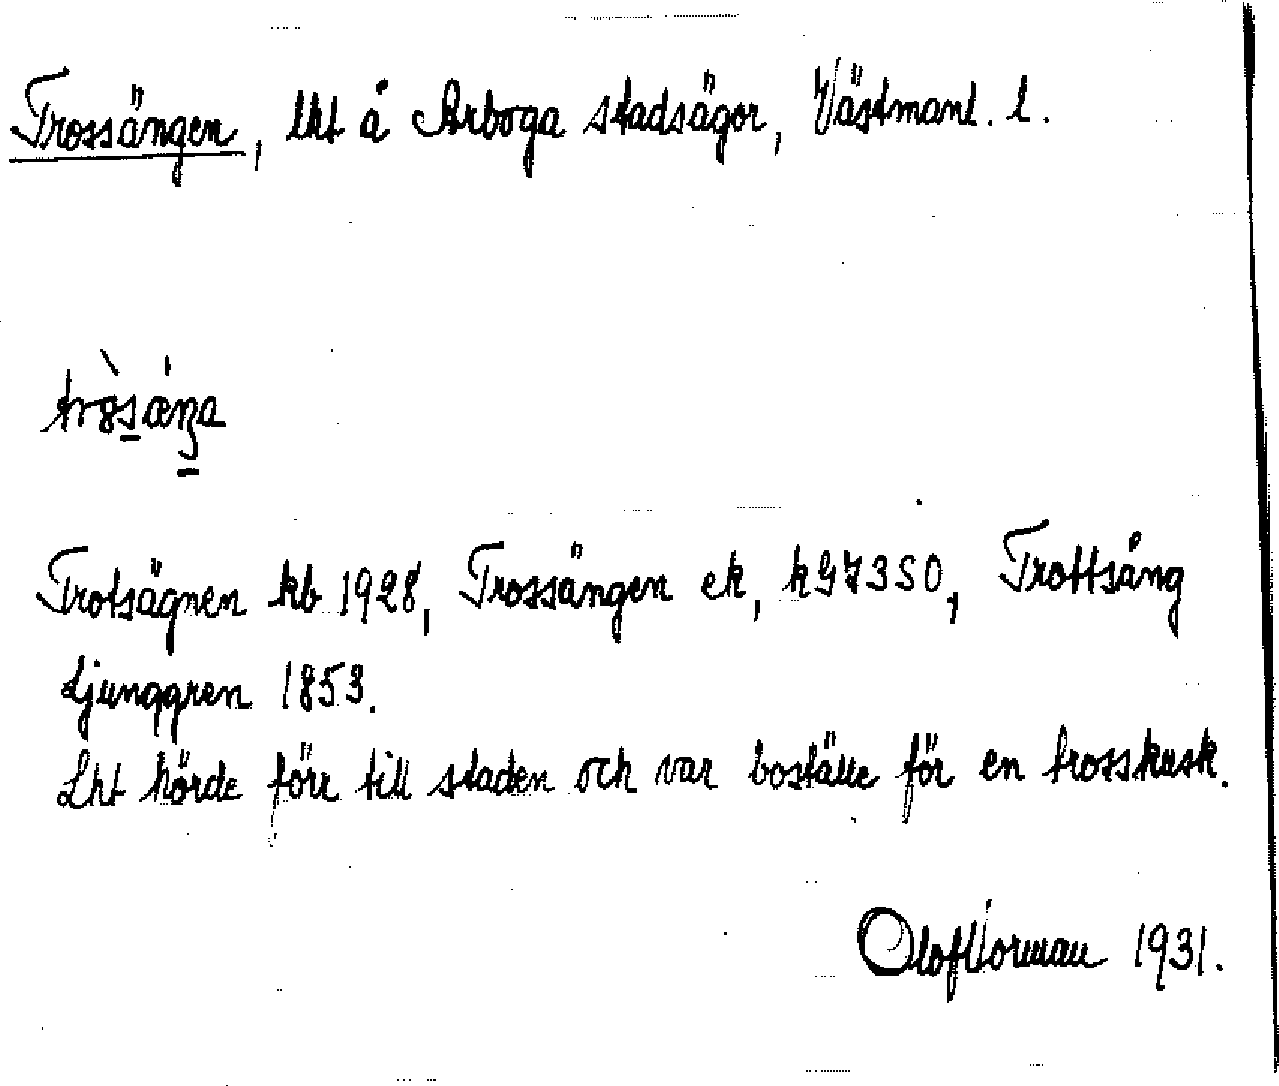 Trossängen, lht å Arboga stadsägor, Västmanl. l.
Trotsägnen kb 1928, Trossängen ek, kG7350, Trottsäng
Ljunggren 1853.
Lht hörde förr till staden och var boställe för en trosskusk.
Olof 1931.